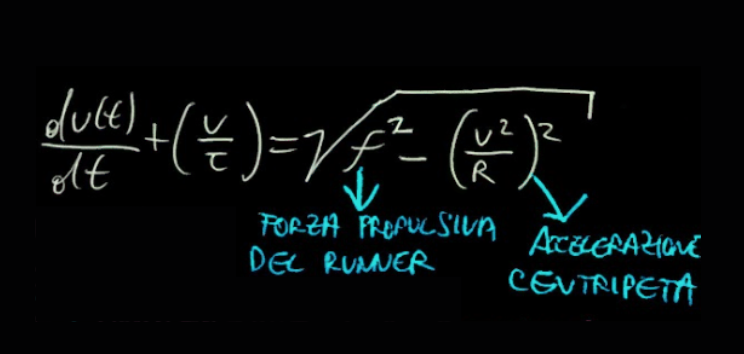 dv(t)/dt + (v/τ) = √(f² - (v²/R)²)
FORZA PROPULSIVA
DEL RUNNER
ACCELERAZIONE
CENTRIPETA